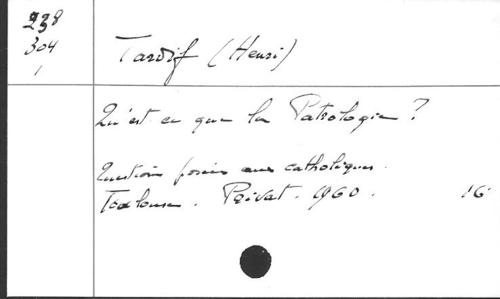 238
304
1
Tardif (Henri)
Qu'est ce que la Patrologie ?
Questions posées aux catholiques.
Toulouse. Privat. 1960. 16